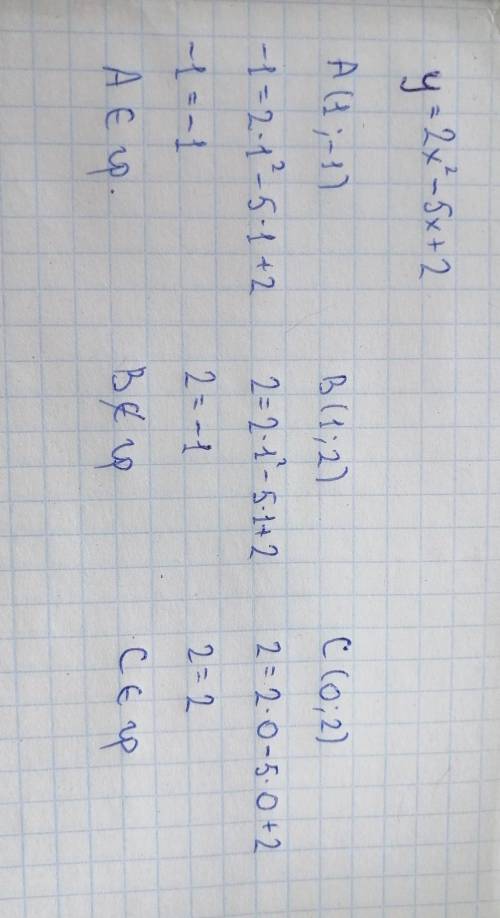 y = 2x² - 5x + 2
A(1; -1)
-1 = 2·1² - 5·1 + 2
-1 = -1
A ∈ гр.
B(1; 2)
2 = 2·1² - 5·1 + 2
2 = -1
B ∉ гр
C(0; 2)
2 = 2·0 - 5·0 + 2
2 = 2
C ∈ гр